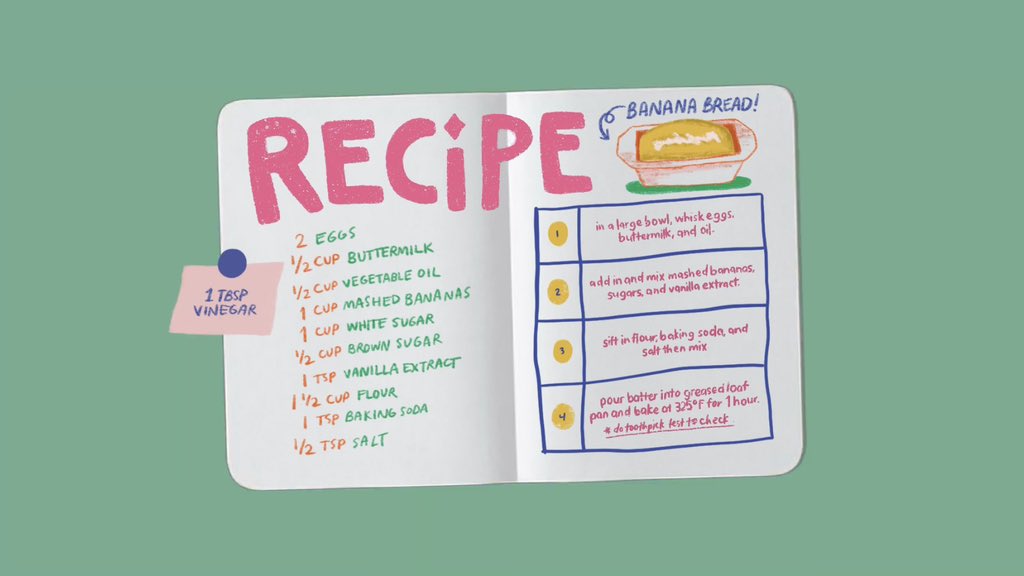 RECIPE
BANANA BREAD!
2 EGGS
1/2 CUP BUTTERMILK
1/2 CUP VEGETABLE OIL
1 CUP MASHED BANANAS
1 CUP WHITE SUGAR
1/2 CUP BROWN SUGAR
1 TSP VANILLA EXTRACT
1 1/2 CUP FLOUR
1 TSP BAKING SODA
1/2 TSP SALT
1 TBSP
VINEGAR
1
in a large bowl, whisk eggs,
buttermilk, and oil.
2
add in and mix mashed bananas,
sugars, and vanilla extract.
3
sift in flour, baking soda, and
salt then mix
4
pour batter into greased loaf
pan and bake at 325°F for 1 hour.
* do toothpick test to check